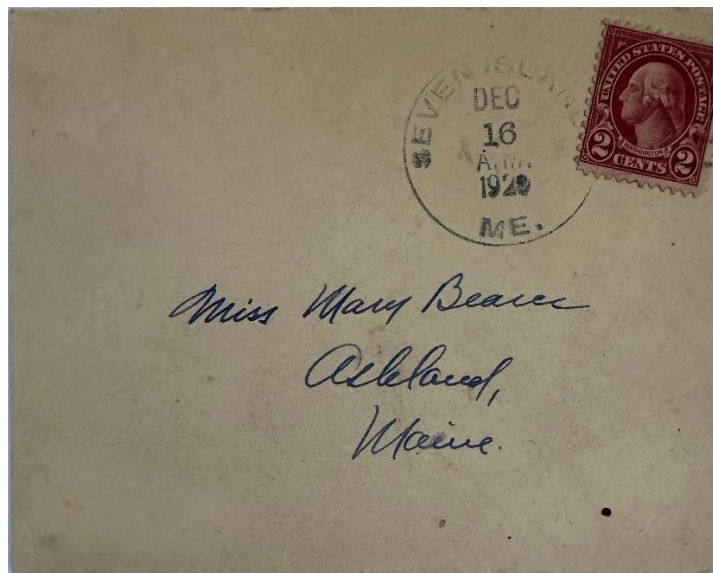 SEVEN ISLAND
DEC
16
A.M.
ME.
UNITED STATES POSTAGE
WASHINGTON
2 CENTS 2
Miss Mary
Ashland,
Maine.